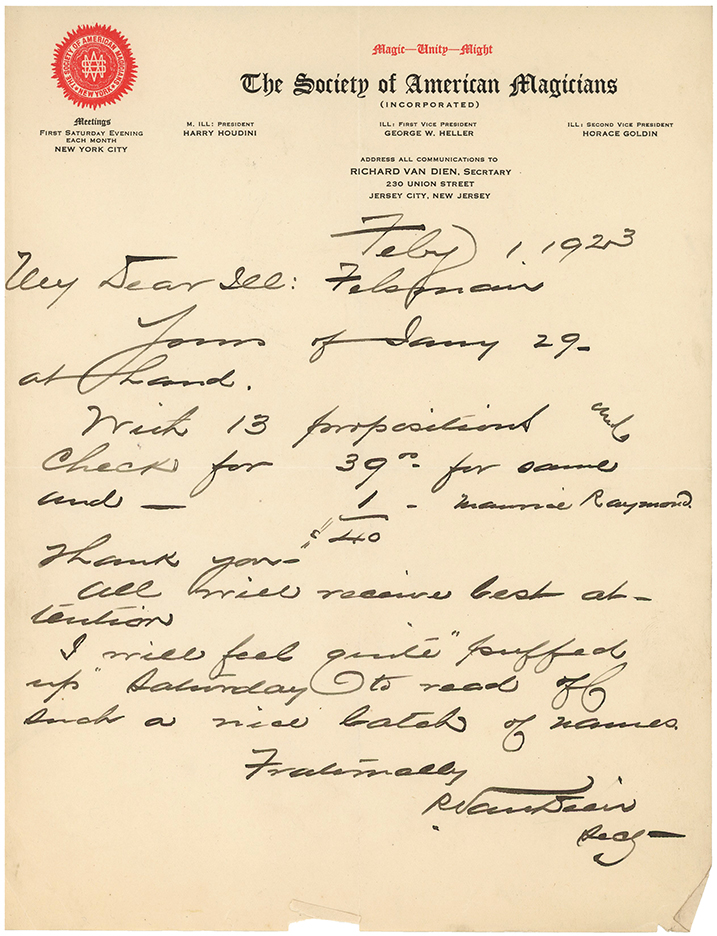 THE SOCIETY OF AMERICAN MAGICIANS
NEW YORK
Magic—Unity—Might
The Society of American Magicians
(INCORPORATED)
Meetings
FIRST SATURDAY EVENING
EACH MONTH
NEW YORK CITY
M. ILL: PRESIDENT
HARRY HOUDINI
ILL: FIRST VICE PRESIDENT
GEORGE W. HELLER
ILL: SECOND VICE PRESIDENT
HORACE GOLDIN
ADDRESS ALL COMMUNICATIONS TO
RICHARD VAN DIEN, SECRTARY
230 UNION STREET
JERSEY CITY, NEW JERSEY
Feby 1, 1923
My Dear Ill: Felsman
Yours of Jany 29-
at hand.
With 13 propositions and
check for 39.00 for same
and — 1 - Maurice Raymond.
$40
Thank you-
All will receive best at-
tention
I will feel quite "puffed
up" Saturday to read off
such a nice batch of names.
Fraternally
R Van Dien
Secy-